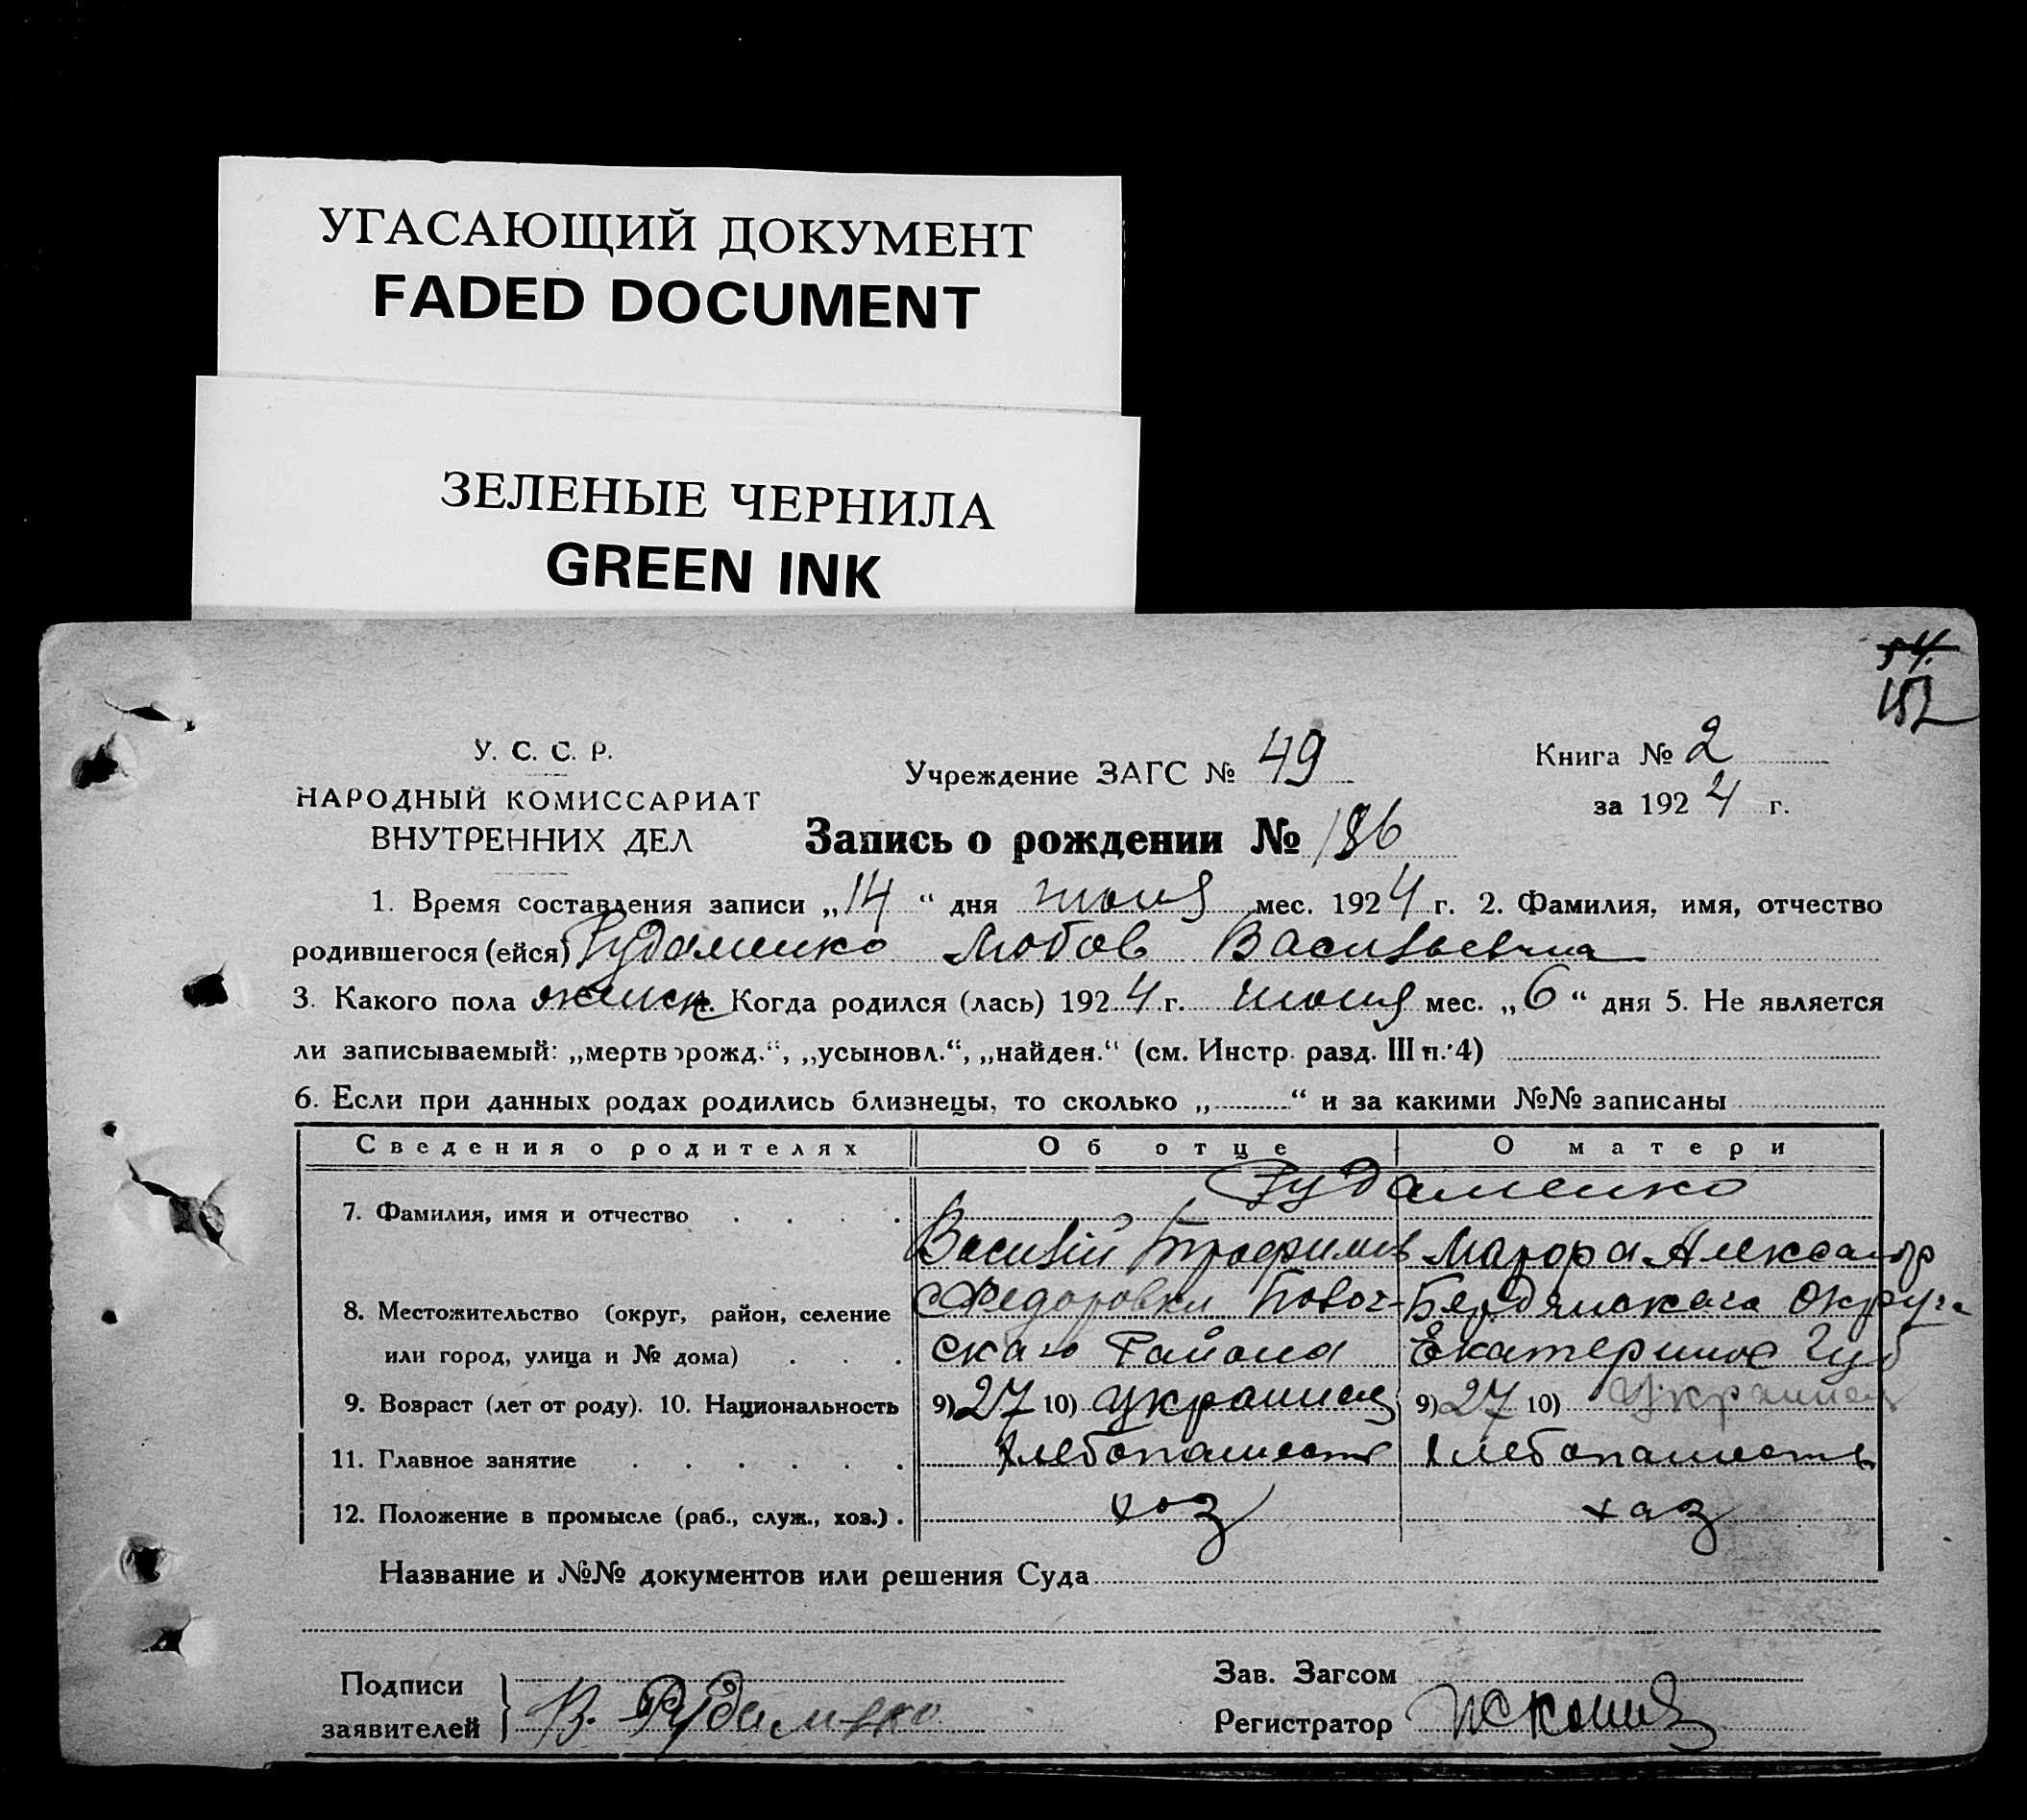 УГАСАЮЩИЙ ДОКУМЕНТ
FADED DOCUMENT
ЗЕЛЕНЫЕ ЧЕРНИЛА
GREEN INK
54.
152
У. С. С. Р.
НАРОДНЫЙ КОМИССАРИАТ
ВНУТРЕННИХ ДЕЛ
Учреждение ЗАГС № 49
Книга № 2
за 1924 г.
Запись о рождении № 186
1. Время составления записи „14“ дня июня мес. 1924 г. 2. Фамилия, имя, отчество
родившегося (ейся) Рудаменко Любов Васильевна
3. Какого пола женск 4. Когда родился (лась) 1924 г. июня мес. „6“ дня 5. Не является
ли записываемый: „мертворожд.“, „усыновл.“, „найден.“ (см. Инстр. разд. III п. 4)
6. Если при данных родах родились близнецы, то сколько „ “ и за какими №№ записаны
Сведения о родителях Об отце О матери
Рудаменко
7. Фамилия, имя и отчество
Василий Трофимов Александр
8. Местожительство (округ, район, селение Федоровки Бердянскага Округа
или город, улица и № дома) скаго Района Екатеринос Губ
9. Возраст (лет от роду). 10. Национальность 9) 27 10) украинец 9) 27 10) украинец
11. Главное занятие хлебопашест хлебопашеств
12. Положение в промысле (раб., служ., хоз.) хоз хаз
Название и №№ документов или решения Суда
Подписи
заявителей В. Рудаменко
Зав. Загсом
Регистратор